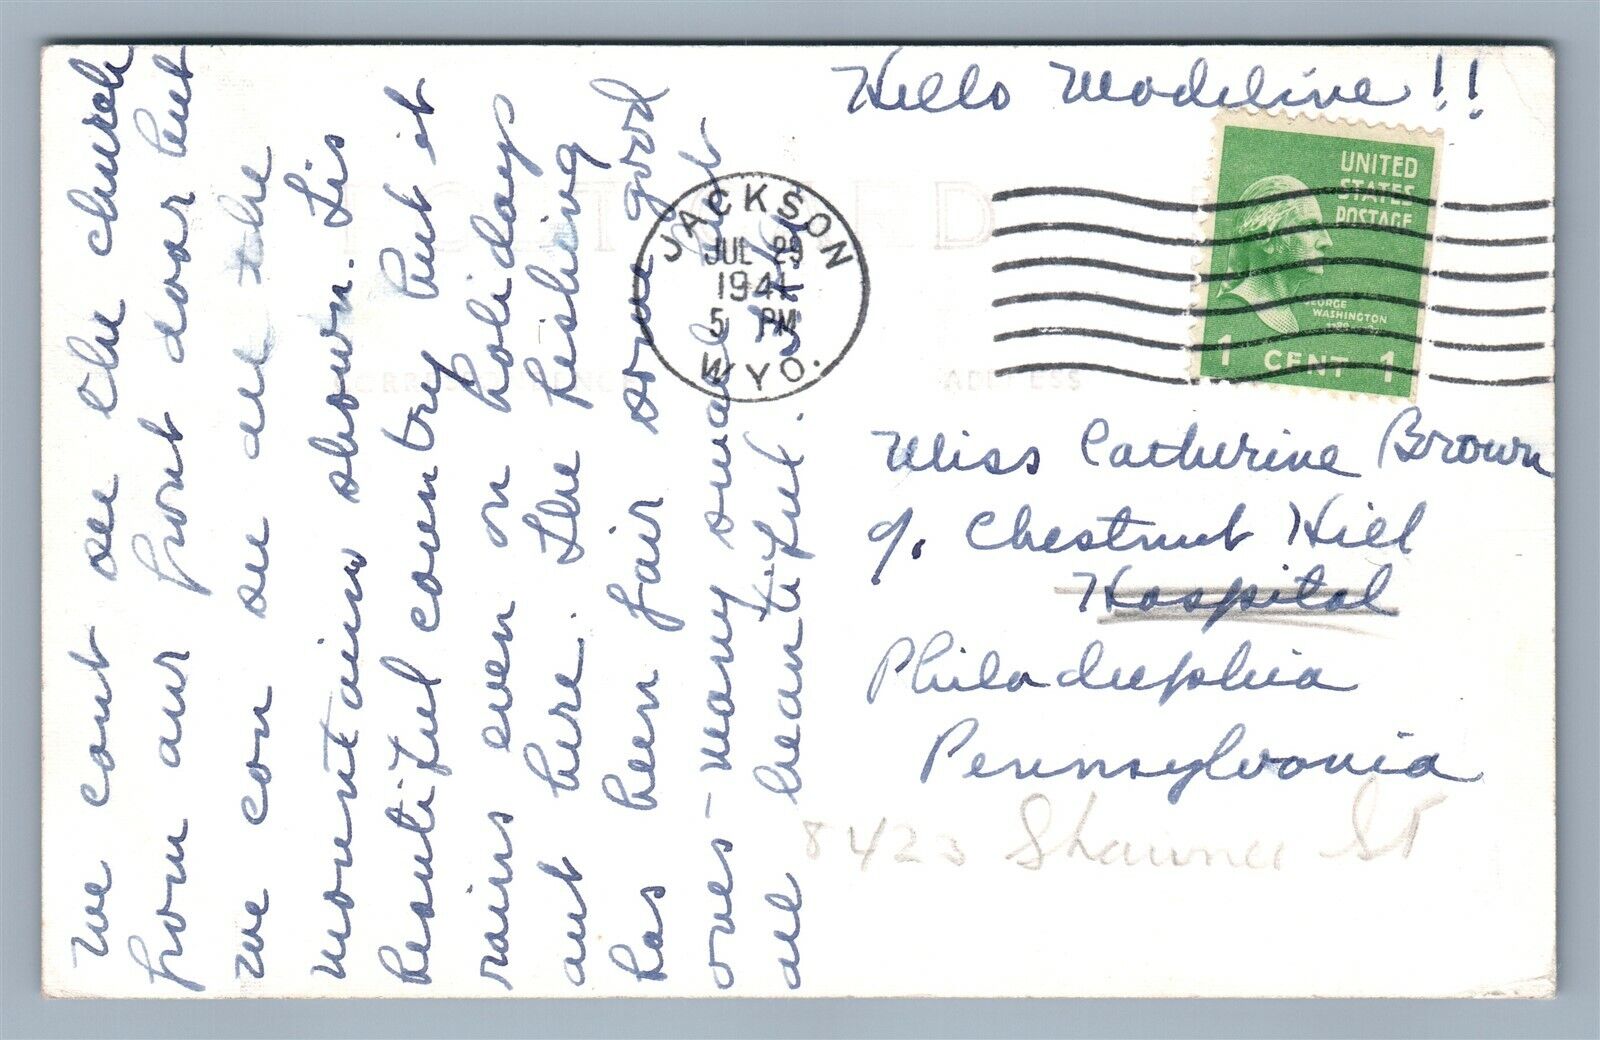 We cant see the church
from our front door but
we can see all the
mountains shown. Tis
beautiful country but it
rains even on holidays
out here. The fishing
has been fair some good
ones - many small but
all beautiful.
Hello Madeline!!
JACKSON
JUL 29
1941
5 PM
WYO.
UNITED
STATES
POSTAGE
GEORGE
WASHINGTON
1 CENT 1
POST CARD
CORRESPONDENCE
ADDRESS
Miss Catherine Brown
c/o Chestnut Hill
Hospital
Philadelphia
Pennsylvania
8423 Shawnee St